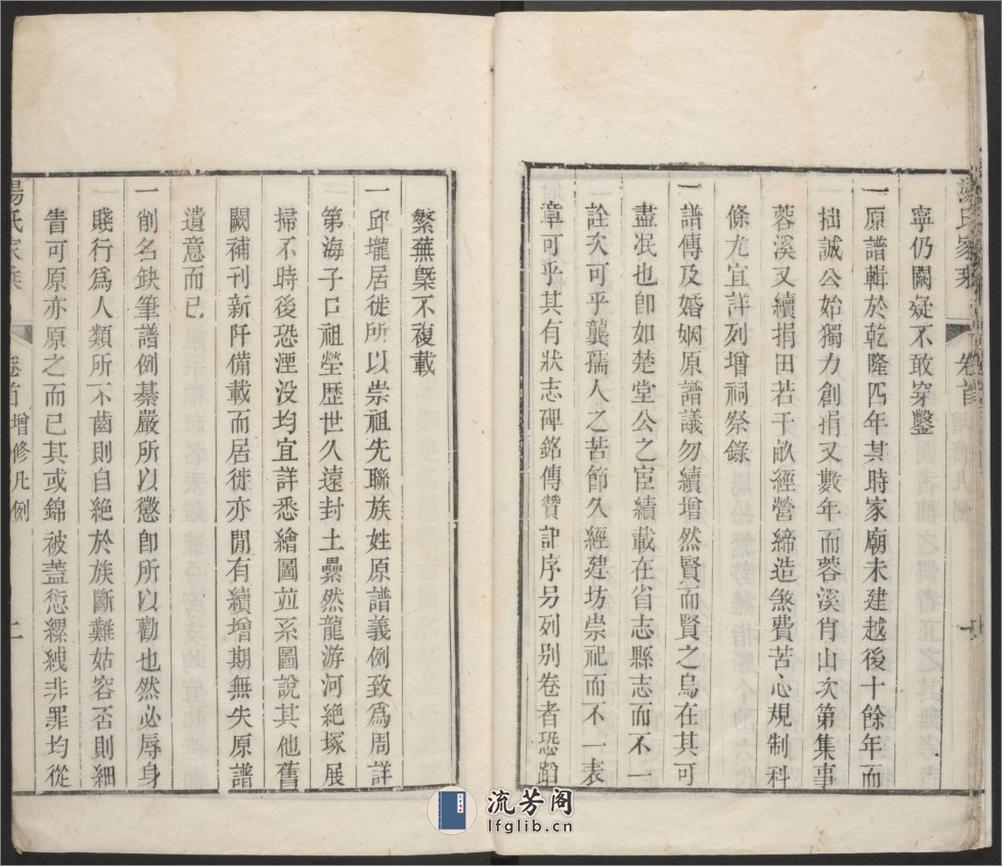 寧仍闕疑不敢穿鑿
一原譜輯於乾隆四年其時家廟未建越後十餘年而
拙誠公始獨力創捐又數年而蓉溪肖山次第集事
蓉溪又續捐田若干畝經營締造煞費苦心規制科
條尤宜詳列增祠祭錄
一譜傳及婚姻原譜議勿續增然賢而賢之烏在其可
盡泯也卽如楚堂公之宦績載在省志縣志而不一
詮次可乎龔孺人之苦節久經建坊崇祀而不一表
章可乎其有狀志碑銘傳贊記序另列别卷者恐蹈
繁蕪槩不複載
一邱壠居徙所以崇祖先聯族姓原譜義例致爲周詳
第海子口祖塋歷世久遠封土纍然龍游河絶塚展
掃不時後恐湮没均宜詳悉繪圖竝系圖說其他舊
闕補刊新阡備載而居徙亦閒有續增期無失原譜
遺意而已
一削名缺筆譜例綦嚴所以懲卽所以勸也然必辱身
賤行爲人類所不齒則自絶於族斷難姑容否則細
眚可原亦原之而已其或錦被蓋愆縲絏非罪均從
氏家乘
卷首
增修凡例
二
流芳阁
lfglib.cn